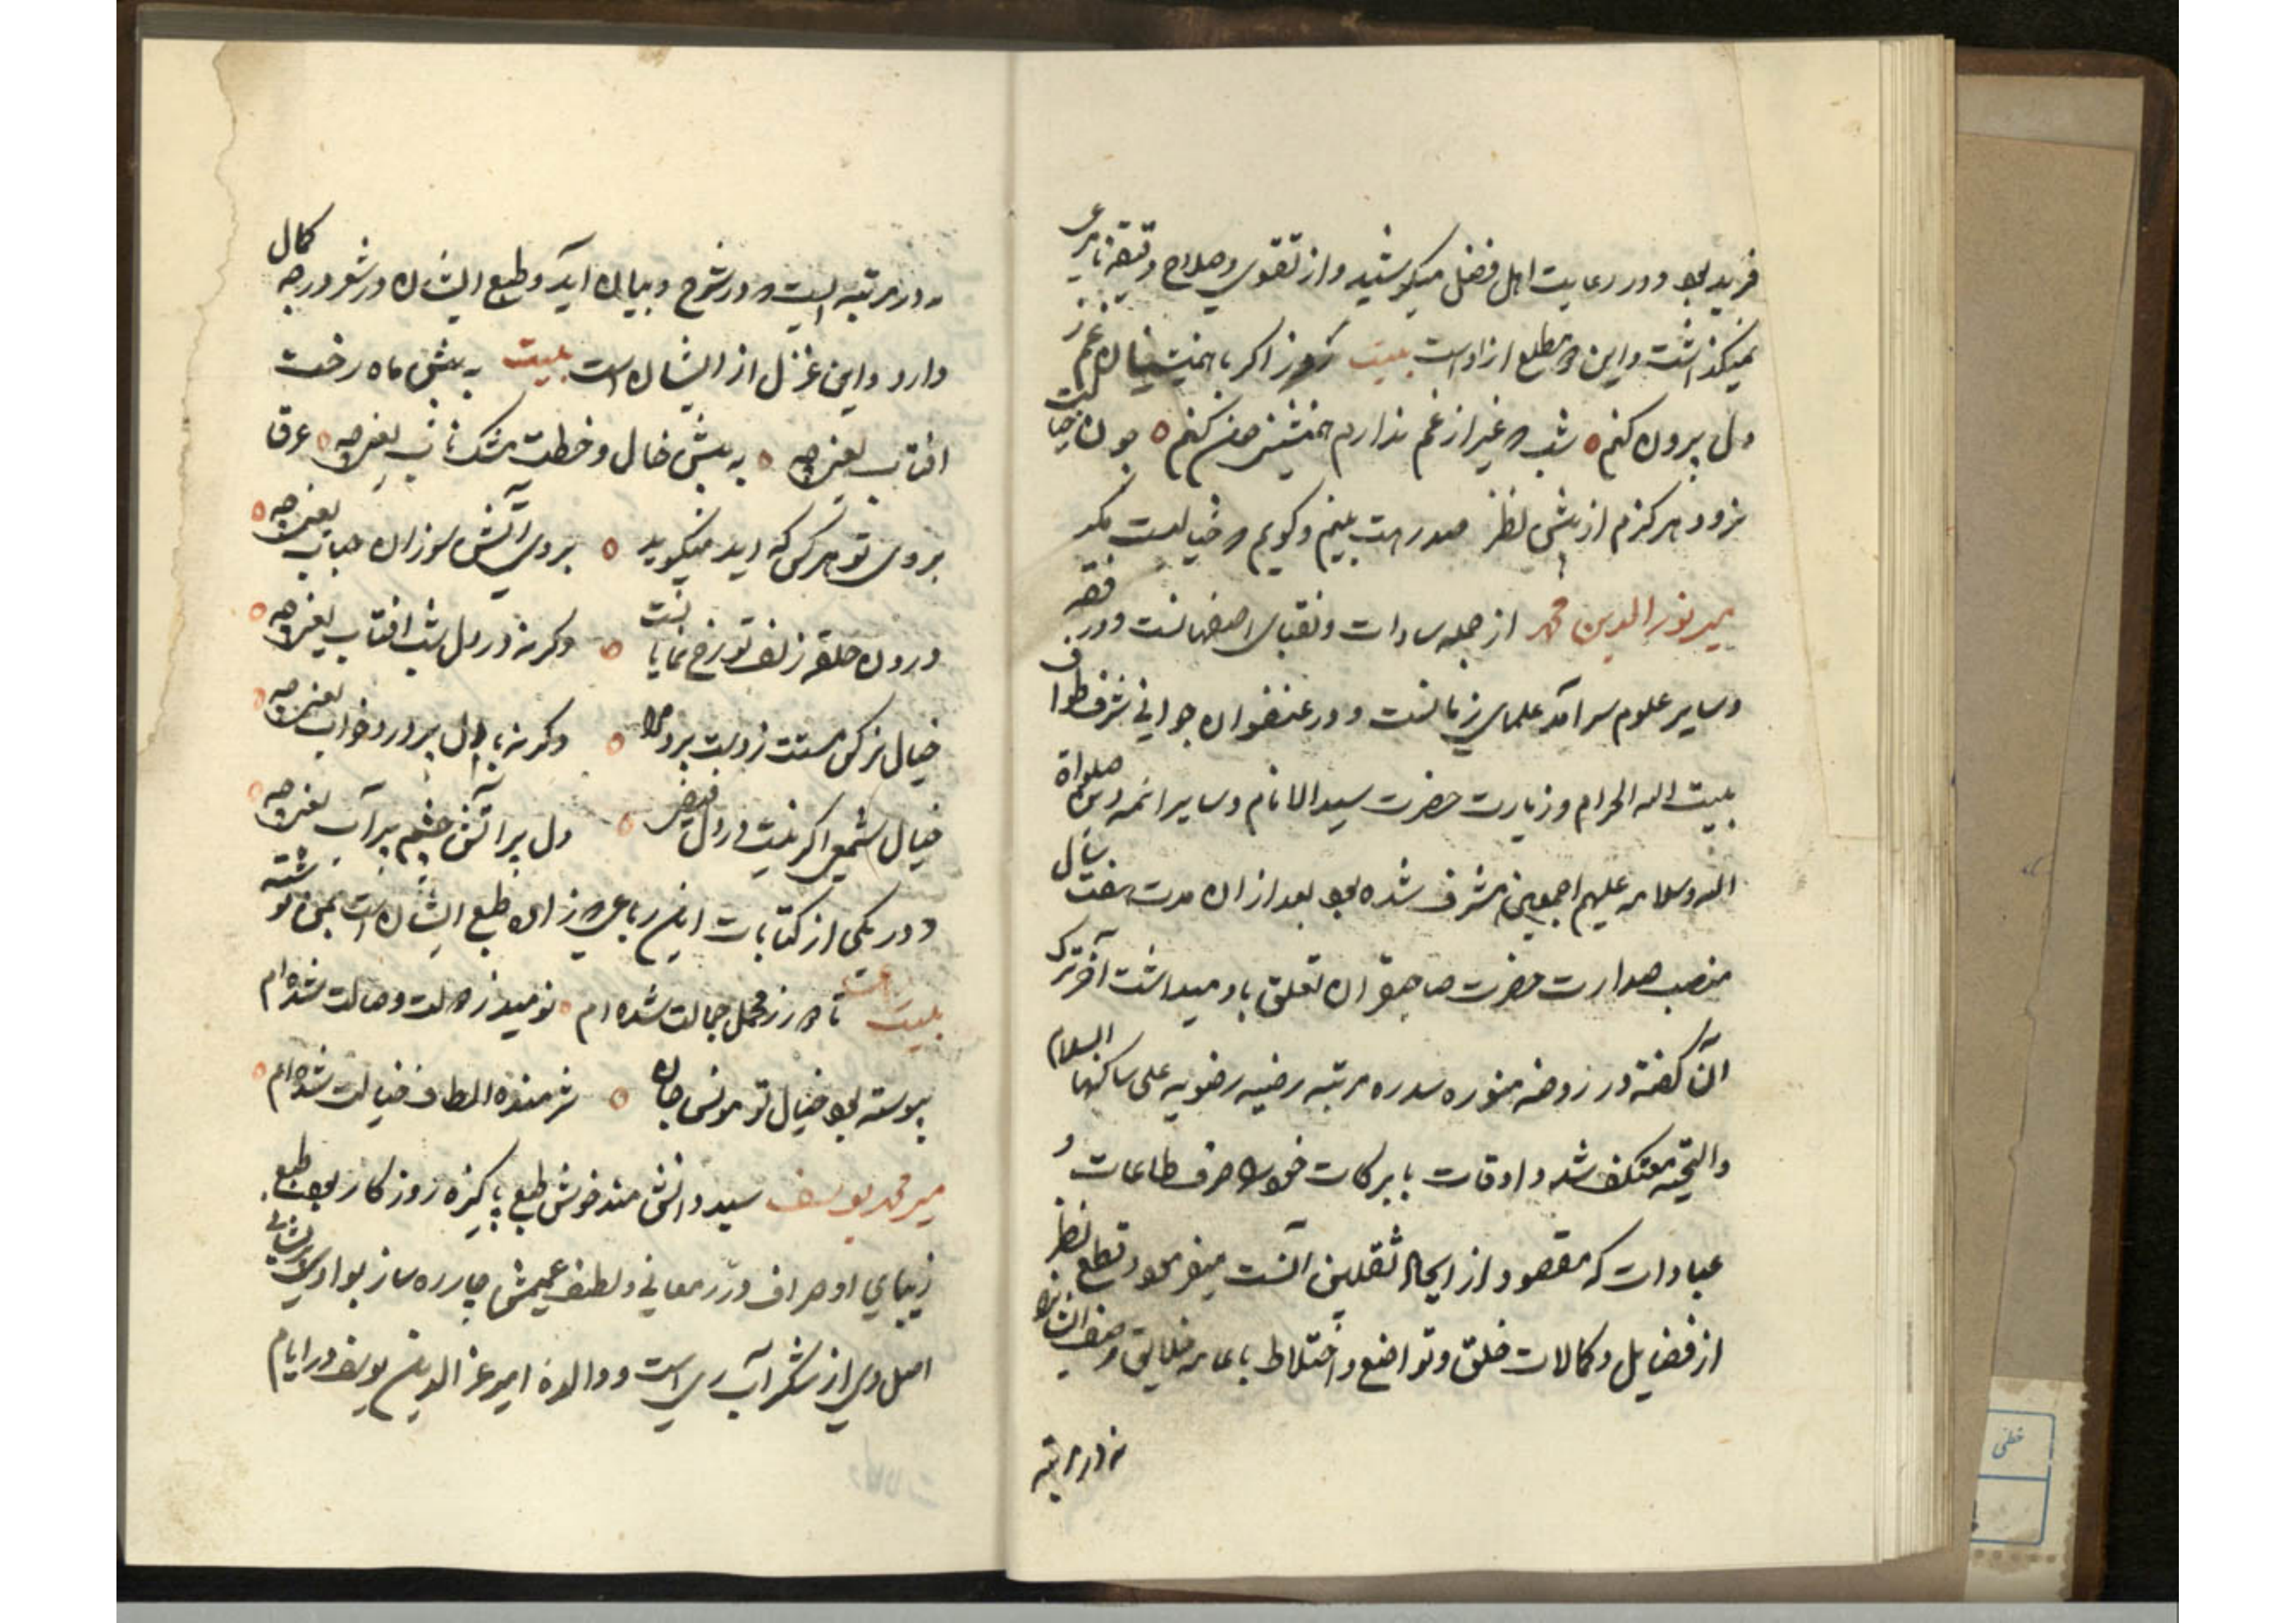 فرید بود و در رعایت اهل فضل میکوشید و از تقوی و صلاح دقیقه نامرعی
نمیکذاشت و این مطلع ازوست بیت روز اکر با همنشینان غم ز
دل بیرون کنم شب که غیر از غم ندارم همنشین چون کنم چون خیالت
نرود هرکزم از پیش نظر صد رهت بینم و کویم که خیالست مکر
میر نورالدین محمد از جمله سادات و نقبای اصفهانست و در فقه
و سایر علوم سرآمد علمای زمانست و در عنفوان جوانی شرف طواف
بیت اله الحرام و زیارت حضرت سید الانام و سایر ائمه صلواة
اله و سلامه علیهم اجمعین مشرف شده بود بعد از ان مدت هفت سال
منصب صدارت حضرت صاحبقران تعلق باو میداشت آخر ترک
آن کفته در روضه منوره سدره مرتبه رضیه رضویه علی ساکنها السلام
والتحیه معتکف شد و اوقات با برکات خود را صرف طاعات و
عبادات که مقصود از ایجاد ثقلین آنست میفرمود قطع نظر
از فضایل و کمالات خلق و تواضع و اختلاط با عامه خلایق
نه در مرتبه
نه در مرتبه ایست که در شرح و بیان آید و طبع ایشان در شعر درجه کمال
دارد و این غزل از ایشان است بیت به پیش ماه رخت
افتاب یعنی چه به پیش خال و خطت مشک ناب یعنی چه عرق
بروی تو هر کس که دید میکوید بروی آتش سوزان حباب یعنی چه
درون حلقه زلف تو رخ نمایانست وکرنه در دل شب افتاب یعنی چه
خیال نرکس مستت ز دست برد مرا وکرنه با دل پر درد خواب یعنی چه
خیال شمع اکر نیست در دل فیضی دل پر آتش و چشم پر آب یعنی چه
و در یکی از کتابات این رباعی که زاده طبع ایشان است بمن نوشته
بیت تا دور ز محمل جمالت شده ام نومید ز دولت وصالت شده ام
پیوسته بود خیال تو مونس جان شرمنده الطاف خیالت شده ام
میر محمد یوسف سید دانش مند خوش طبع پاکیزه روزکار بود طبع
زیبای او صراف درر معانی و لطف عمیمش چاره ساز بوادی پریشانی
اصل وی از شکرآب ری است و والده امیر عزالدین یوسف در ایام
خطی